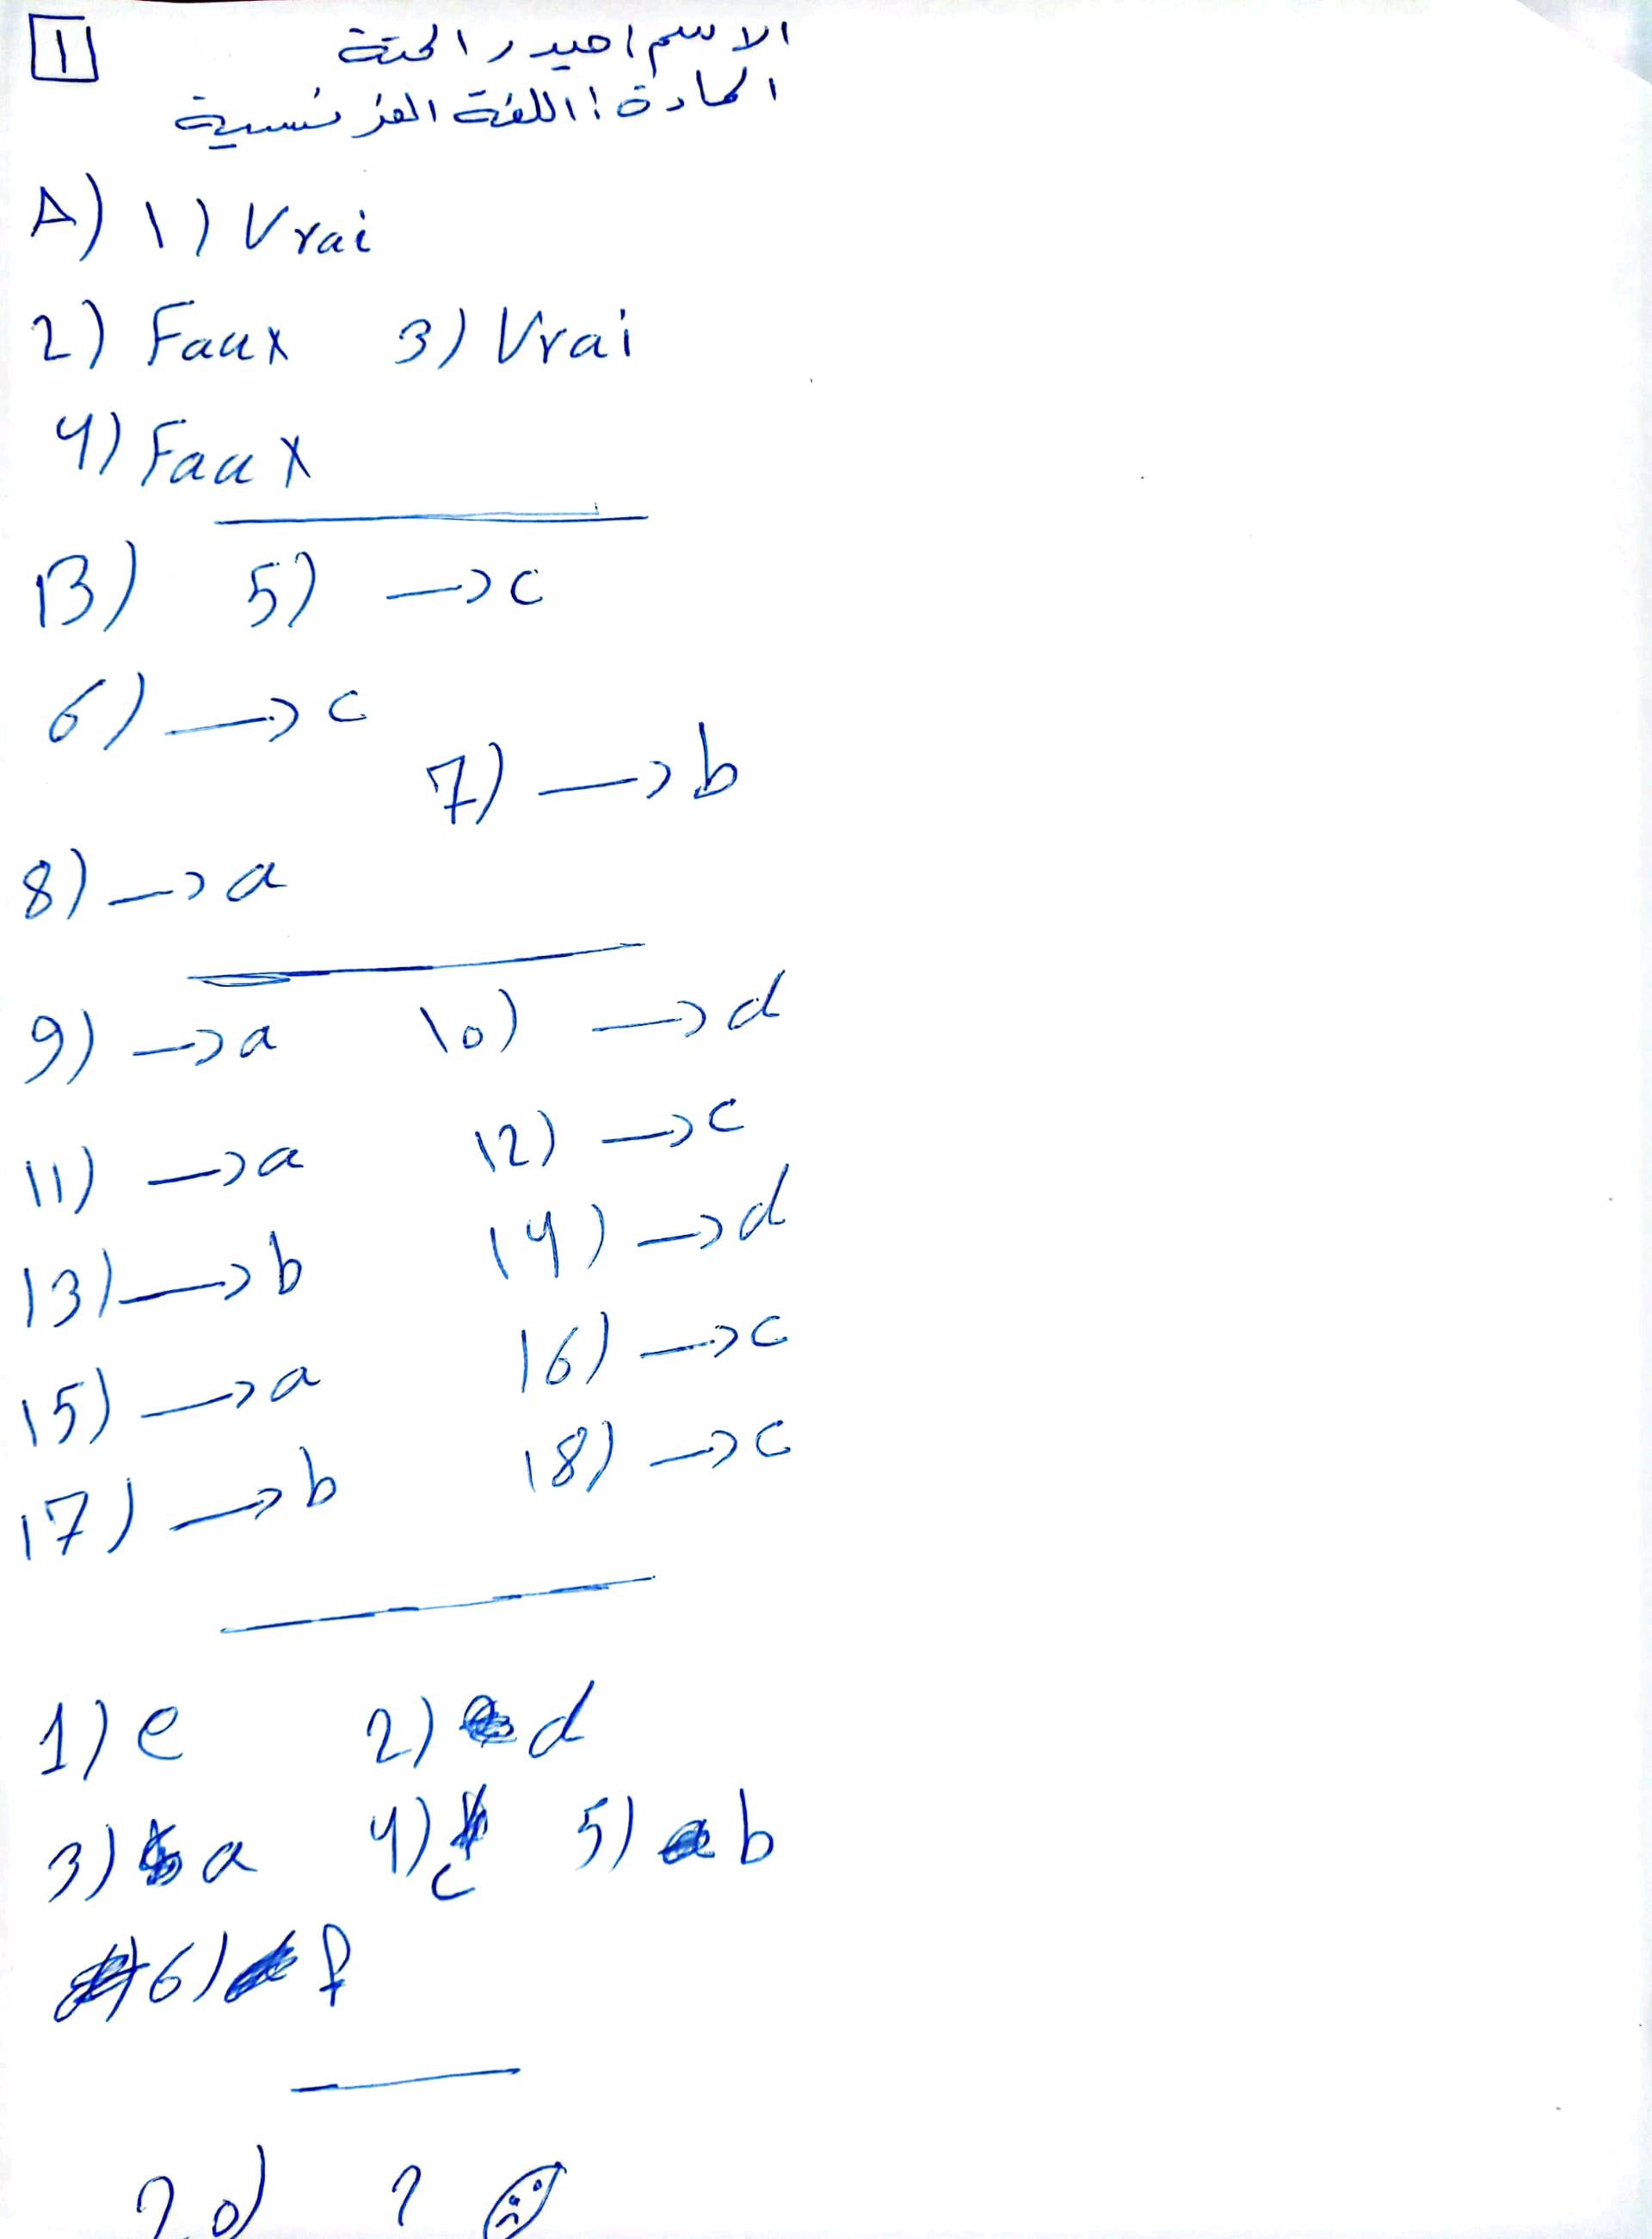 1
الاسم احيدر الحتة
المادة: اللغة الفرنسية
A) 1) Vrai
2) Faux 3) Vrai
4) Faux
B) 5) → c
6) → c
7) → b
8) → a
9) → a 10) → d
11) → a 12) → c
13) → b 14) → d
15) → a 16) → c
17) → b 18) → c
1) e 2) d
3) a 4) c 5) b
6) f
20) ?